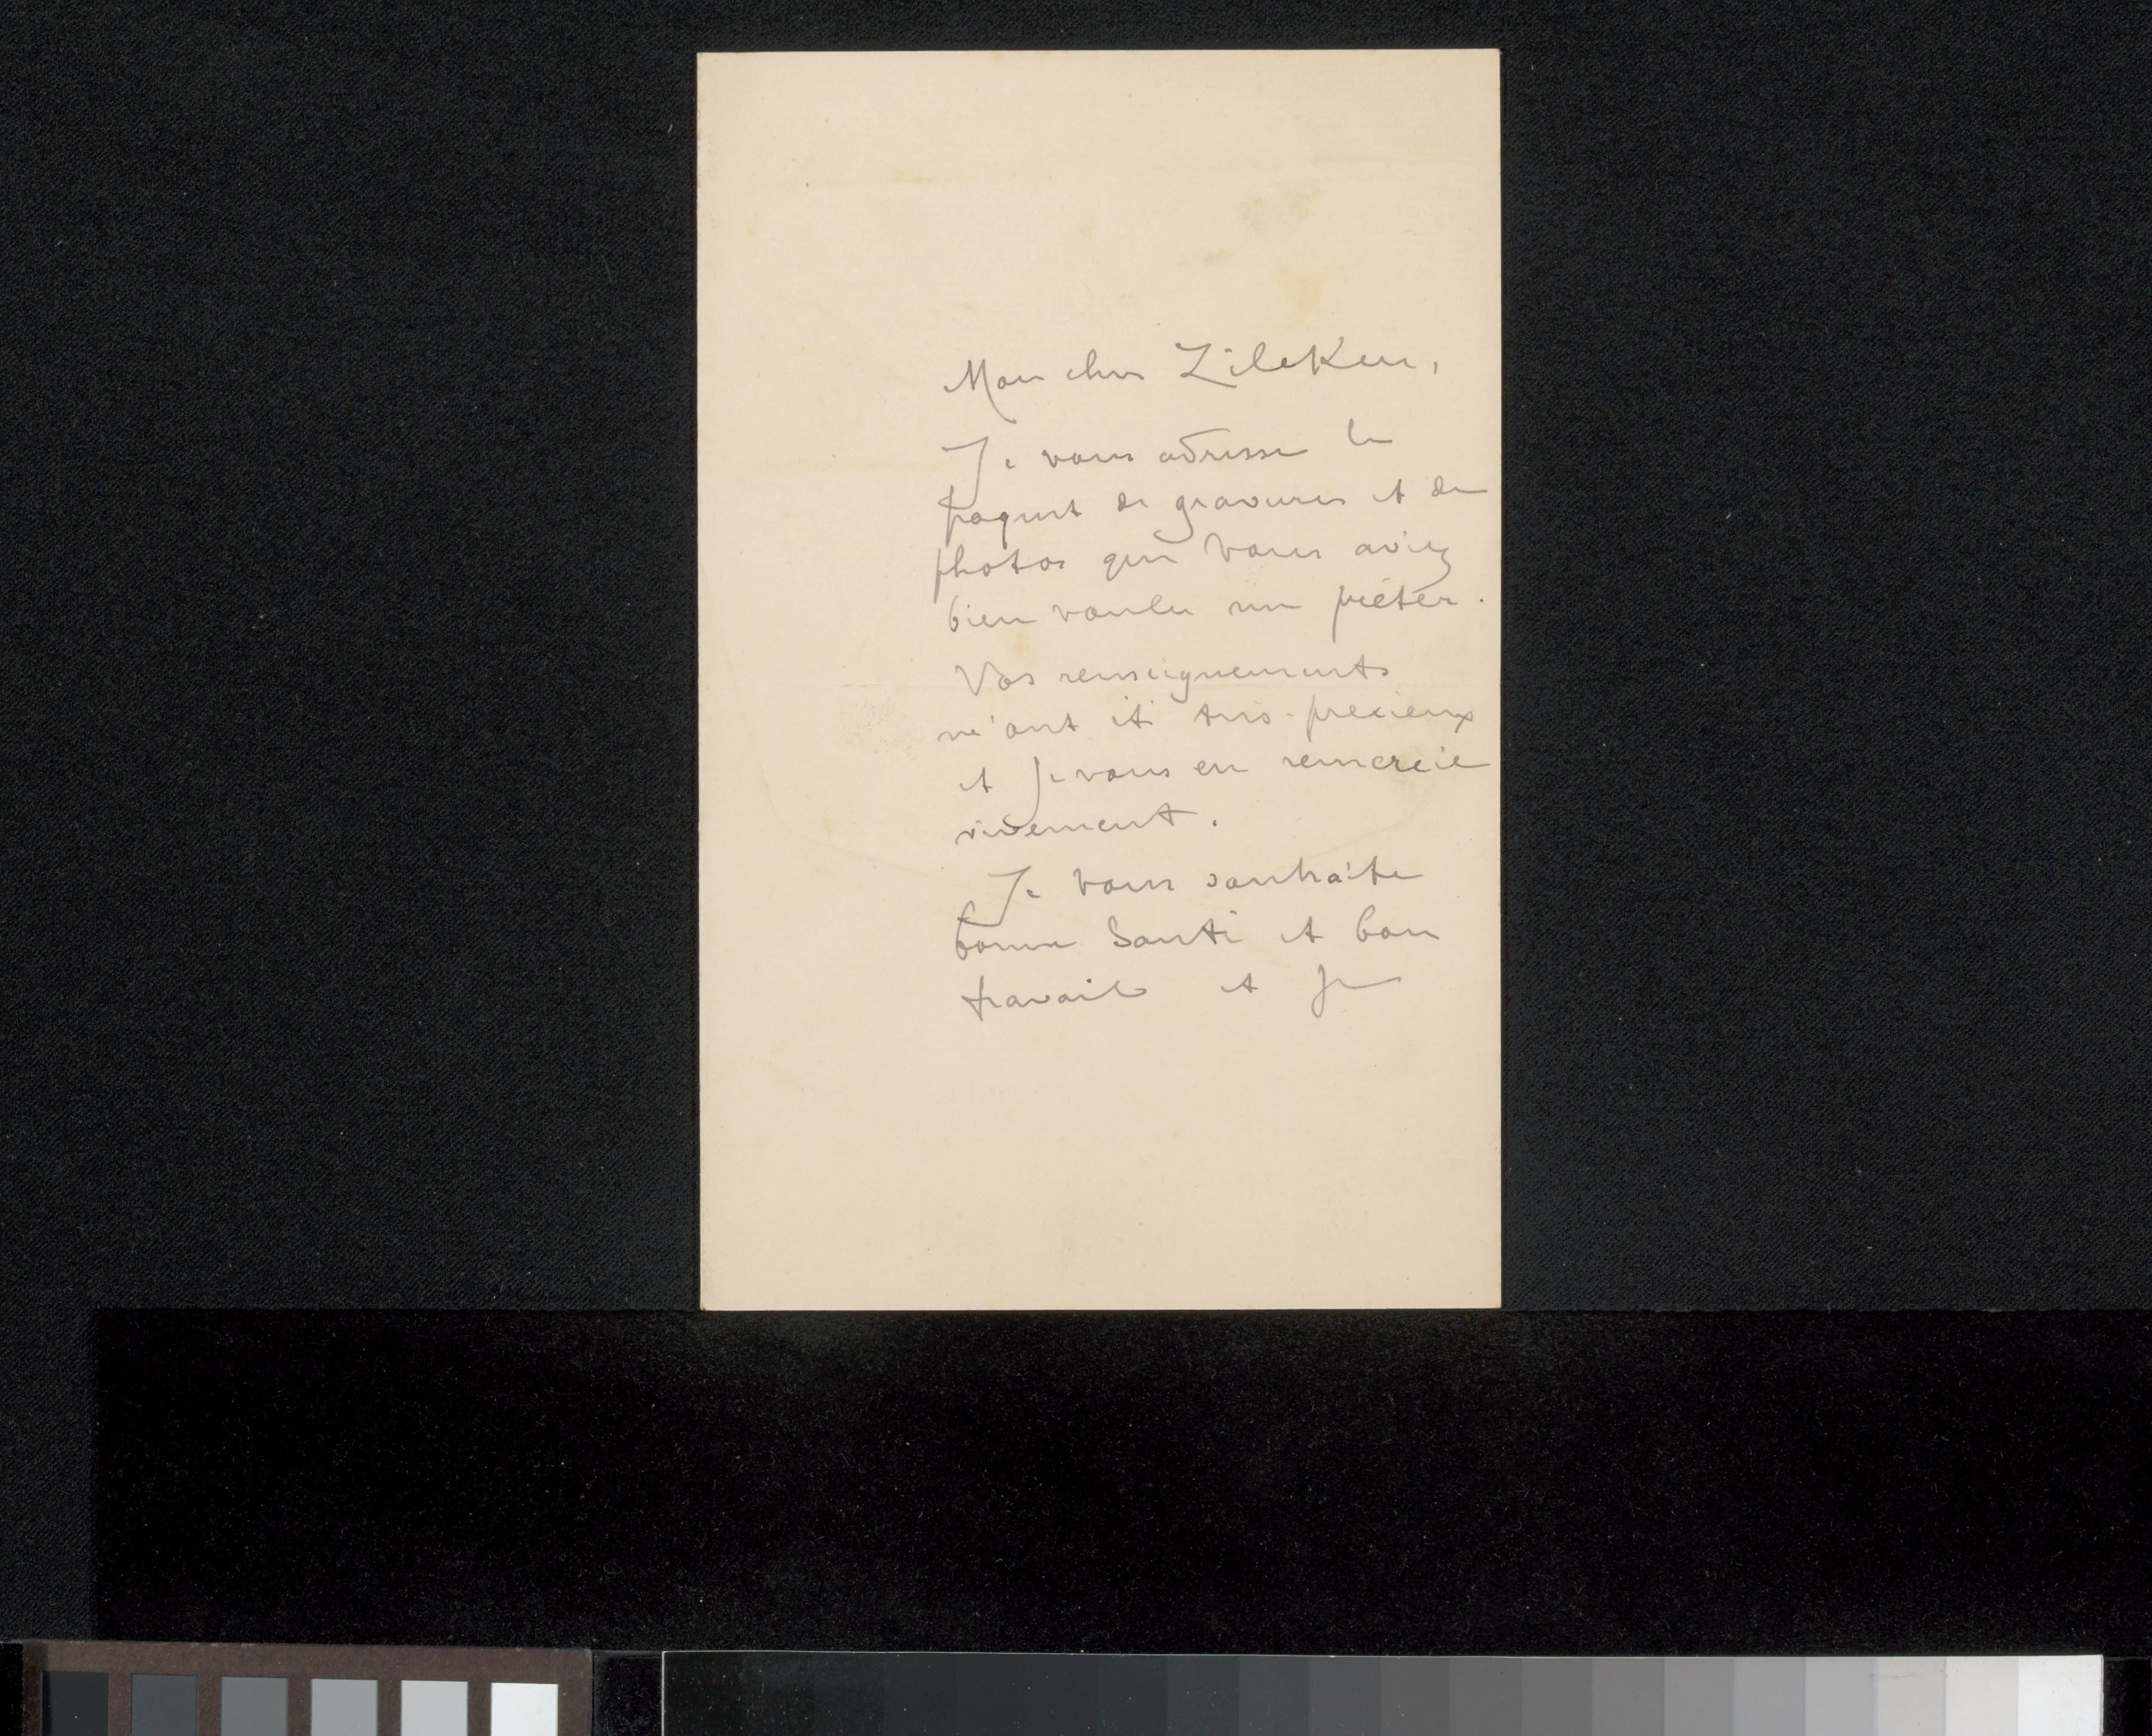 Mon cher Zileken,
Je vous adresse le
paquet de gravures et de
photos que vous aviez
bien voulu me prêter.
Vos renseignements
m'ont été très-precieux
et je vous en remercie
vivement.
Je vous souhaite
bonne santé et bon
travail et je